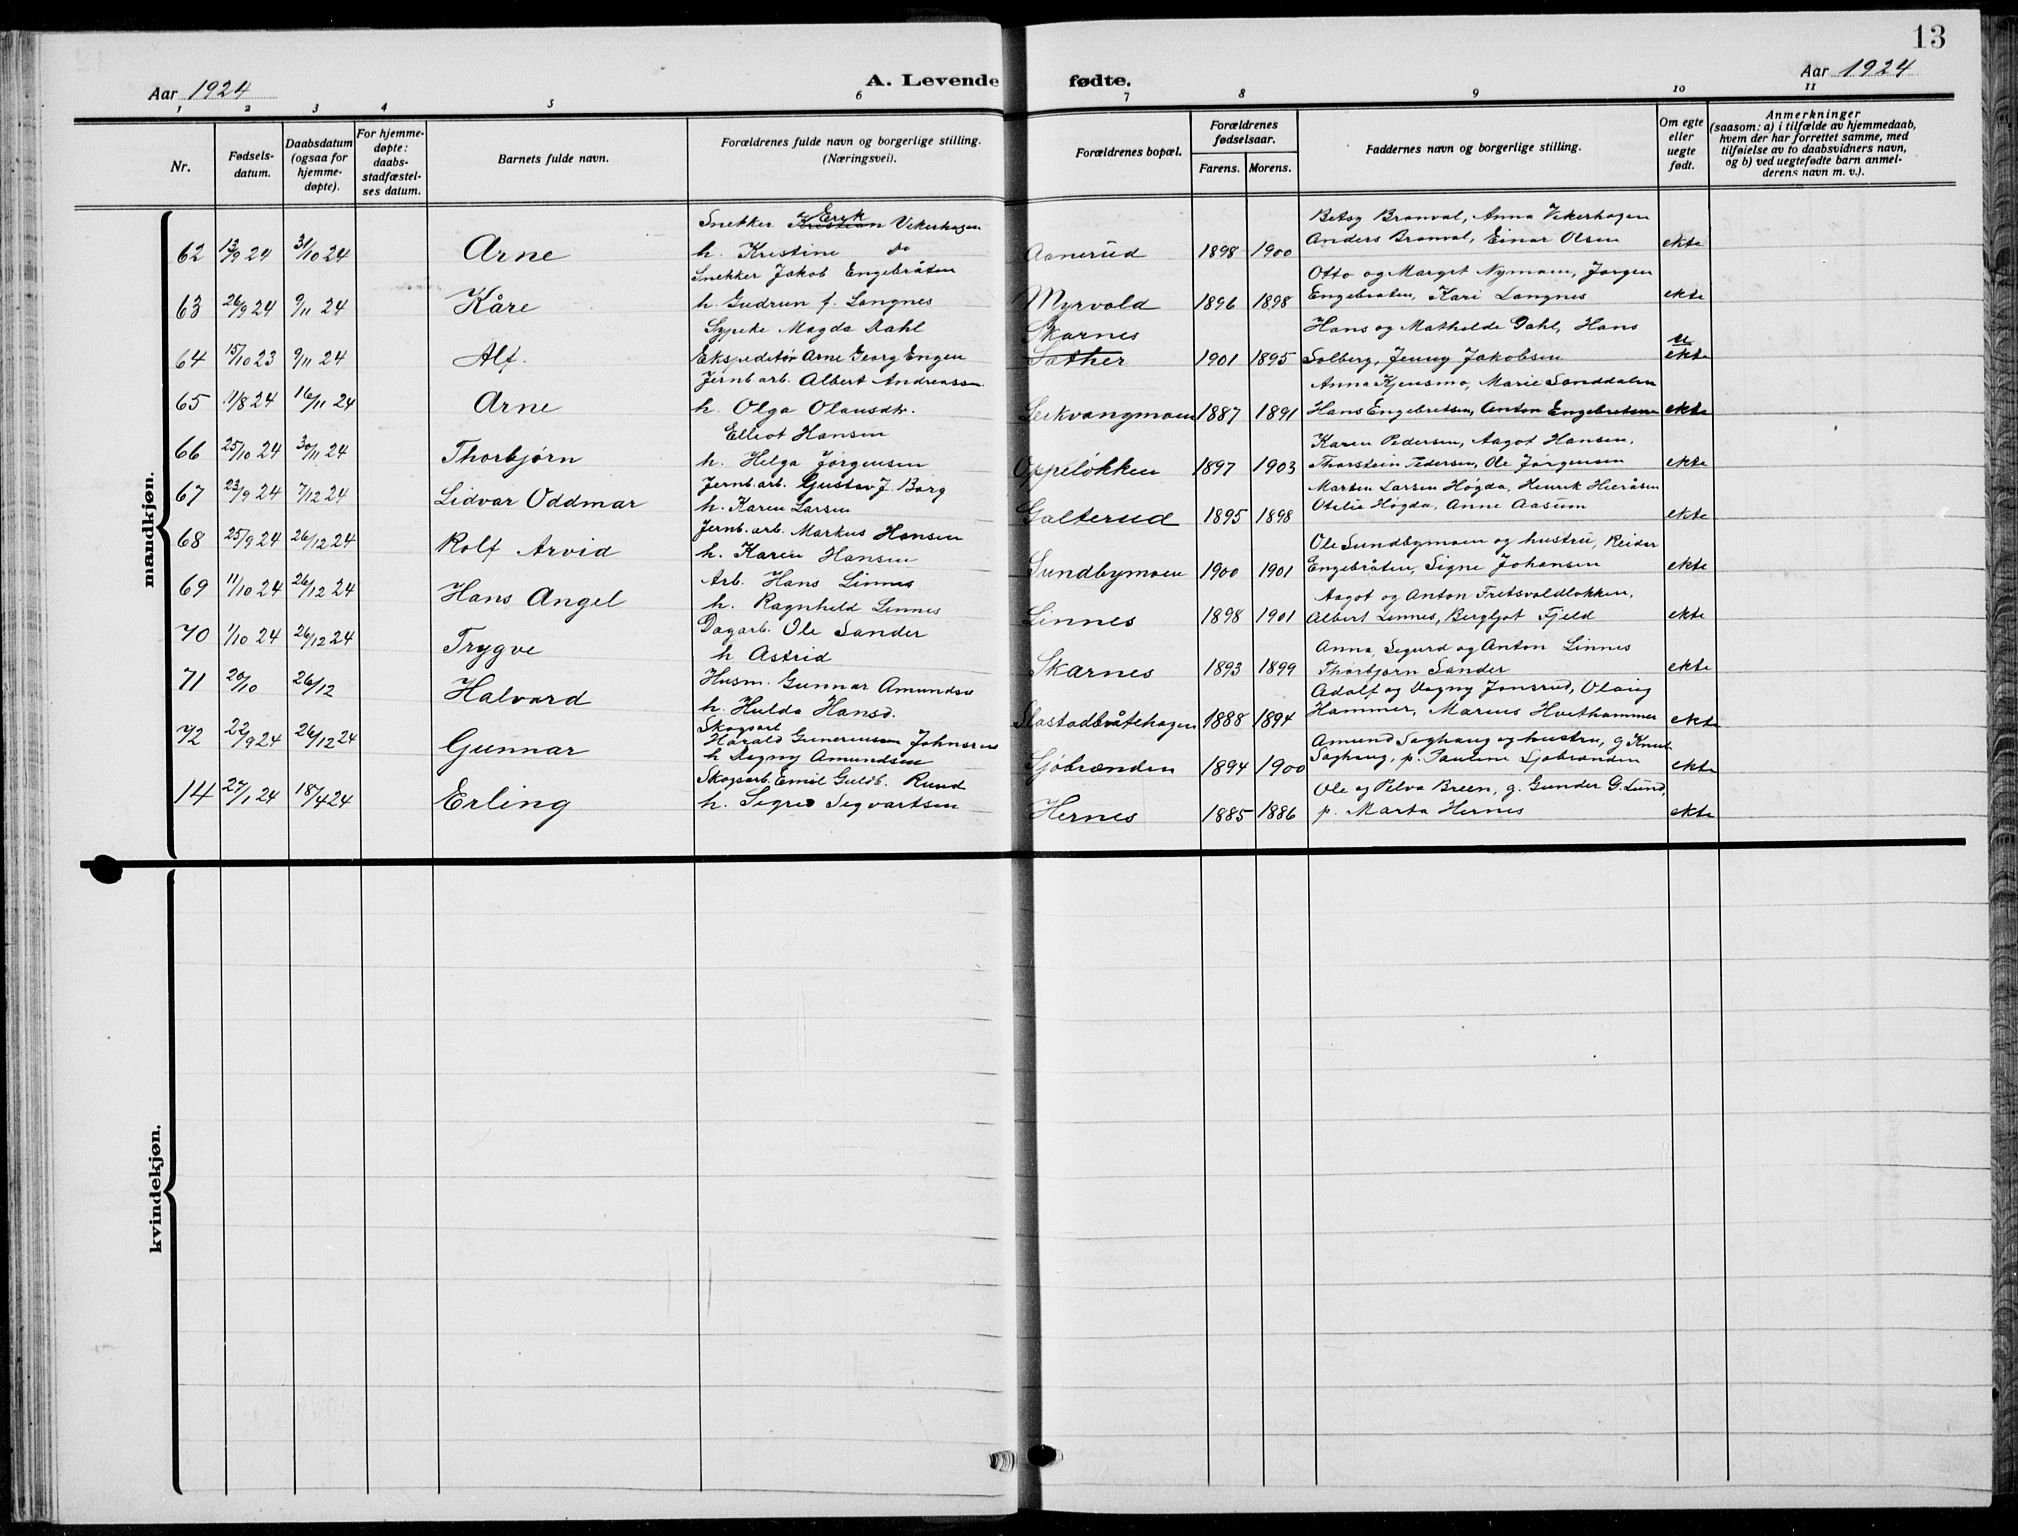 13
Aar 1924 A. Levende fødte. Aar 1924
1 2 3 4 5 6 7 8 9 10 11
Nr.
Fødsels-
datum.
Daabsdatum
(ogsaa for
hjemme-
døpte).
For hjemme-
døpte:
daabs-
stadfæstel-
ses datum.
Barnets fulde navn.
Forældrenes fulde navn og borgerlige stilling.
(Næringsvei).
Forældrenes bopæl.
Forældrenes
fødselsaar.
Farens. Morens.
Faddernes navn og borgerlige stilling.
Om egte
eller
uegte
født.
Anmerkninger
(saasom: a) i tilfælde av hjemmedaab,
hvem der har forrettet samme, med
tilføielse av to daabsvidners navn,
og b) ved uegtefødte barn anmel-
derens navn m. v.).
mandkjøn.
Erik
Snekker Kristian Vekerhagen Betsy Bronval, Anna Vekerhagen
62 13/9 24 31/10 24 Arne h. Kristine do Aanerud 1898 1900 Anders Bronval, Einar Olsen ekte
Snekker Jakob Engebråten Otto og Margit Nymoen, Jørgen
63 26/9 24 9/11 24 Kåre h. Gudrun f. Langnes Myrvold 1896 1898 Engebråten, Kari Langnes ekte
Sypike Magda Dahl Skarnes Hans og Mathilde Dahl, Hans u
64 15/10 23 9/11 24 Alf. Ekspeditør Arne Georg Engen Sæther 1901 1895 Solberg, Jenny Jakobsen ekte
Jernb arb. Albert Andreassen Anna Kjensmo, Marie Sanddalen
65 11/8 24 16/11 24 Arne h. Olga Olausdtr. 1887 1891 Hans Engebretsen, Anton Engebretsen ekte
Elliot Hansen Karen Pedersen, Aagot Hansen,
66 25/10 24 30/11 24 Thorbjørn h. Helga Jørgensen Oppeløkken 1897 1903 Thorstein Pedersen, Ole Jørgensen ekte
Jernb arb. Gustav J. Borg Marten Larsen Høgda, Henrik Hieråsen
67 23/9 24 7/12 24 Lidvar Oddmar h. Karen Larsen Galterud 1895 1898 Otilie Høgda, Anne Aasum ekte
Jernb. arb. Markus Hansen Ole Sundbymoen og hustru, Reidar
68 25/9 24 26/12 24 Rolf Arvid h. Karen Hansen Sundbymoen 1900 1901 Engebråten, Signe Johansen ekte
Arb. Hans Linnes Aagot og Anton Fretsvoldløkken,
69 11/10 24 26/12 24 Hans Angel h. Ragnhild Linnes Linnes 1898 1901 Albert Linnes, Bergljot Fjeld ekte
Dagarb. Ole Sander Anna, Sigurd og Anton Linnes
70 1/10 24 26/12 24 Trygve h Astrid Skarnes 1893 1899 Thorbjørn Sander ekte
Husm. Gunnar Amundsen Adolf og Dagny Jonsrud, Olaug
71 20/10 26/12 Halvard h. Hulda Hansd. Slastadbråtehagen 1888 1894 Hammer, Marius Hvithammer ekte
Skogsarb
Harald Guneriussen Johnsrud Amund Saghaug og hustru, g Knut
72 22/9 24 26/12 24 Gunnar h Dagny Amundsen Sjøbrænden 1894 1900 Saghaug, p. Pauline Sjøbrænden ekte
Skogsarb. Emil Guldb. Ruud Ole og Pelva Breen, g. Gunder G. Lund,
14 27/1 24 18/4 24 Erling h. Sigrid Sigvartsen Hernes 1885 1886 p. Marta Hernes ekte
kvindekjøn.